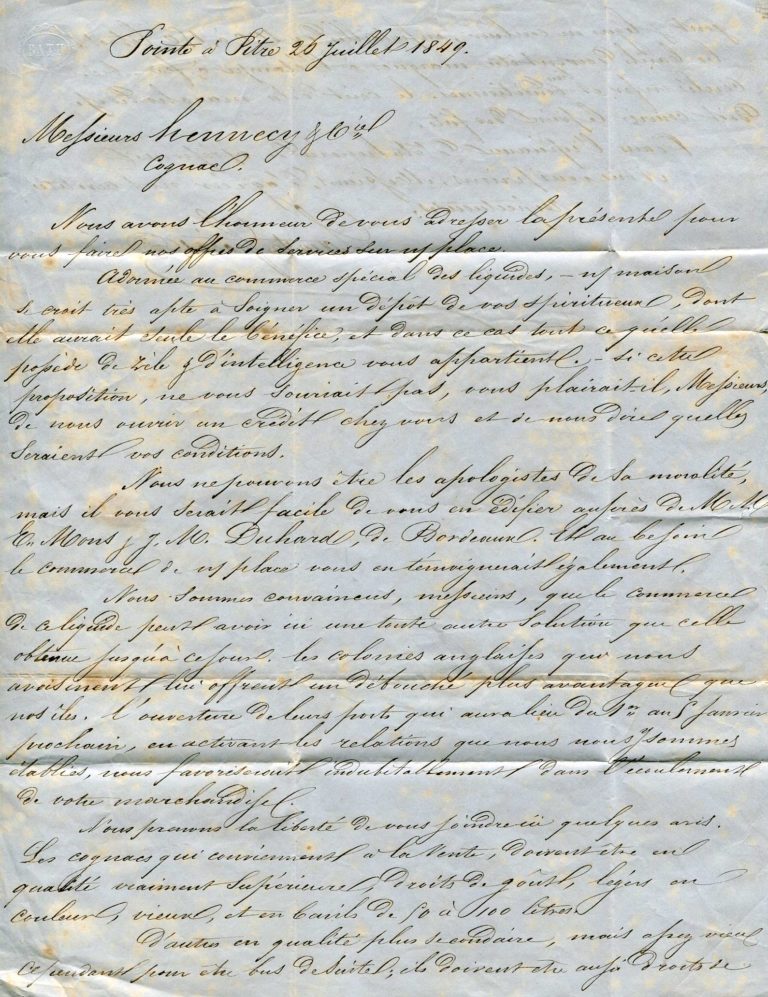 BATH
Pointe à Pitre 26 Juillet 1849.
Messieurs hennecy & Cie
Cognac.
Nous avons l'honneur de vous adresser la présente pour
vous faire nos offres de services sur n/ place.
Adonnée au commerce spécial des liquides, – n/ maison
se croit très apte à soigner un dépôt de vos spiritueux, dont
elle aurait seule le bénéfice, et dans ce cas tout ce qu'elle
possède de zèle & d'intelligence vous appartient. – Si cette
proposition, ne vous souriait pas, vous plairait-il, Messieurs,
de nous ouvrir un crédit chez vous et de nous dire quelles
seraient vos conditions.
Nous ne pouvons être les apologistes de sa moralité,
mais il vous serait facile de vous en édifier auprès de M.M.
E. Mons & J. M. Duhard, de Bordeaux. Et au besoin
le commerce de n/ place vous en témoignerait également.
Nous sommes convaincus, messieurs, que le commerce
de ce liquide peut avoir ici une toute autre solution que celle
obtenue jusqu'à ce jour. les colonies anglaises qui nous
avoisinent lui offrent un débouché plus avantageux que
nos îles. l'ouverture de leurs ports qui aura lieu du 1er au 5 Janvier
prochain, en activant les relations que nous nous y sommes
établies, nous favoriseront indubitablement dans l'écoulement
de votre marchandise.
Nous prenons la liberté de vous joindre ici quelques avis.
Les cognacs qui conviennent à la vente, doivent être en
qualité vraiment supérieure, droits de goût, légers en
couleur, vieux, et en barils de 50 à 100 litres.
D'autres en qualité plus secondaire, mais assez vieux
cependant pour être bus de suite, ils doivent être aussi droits de